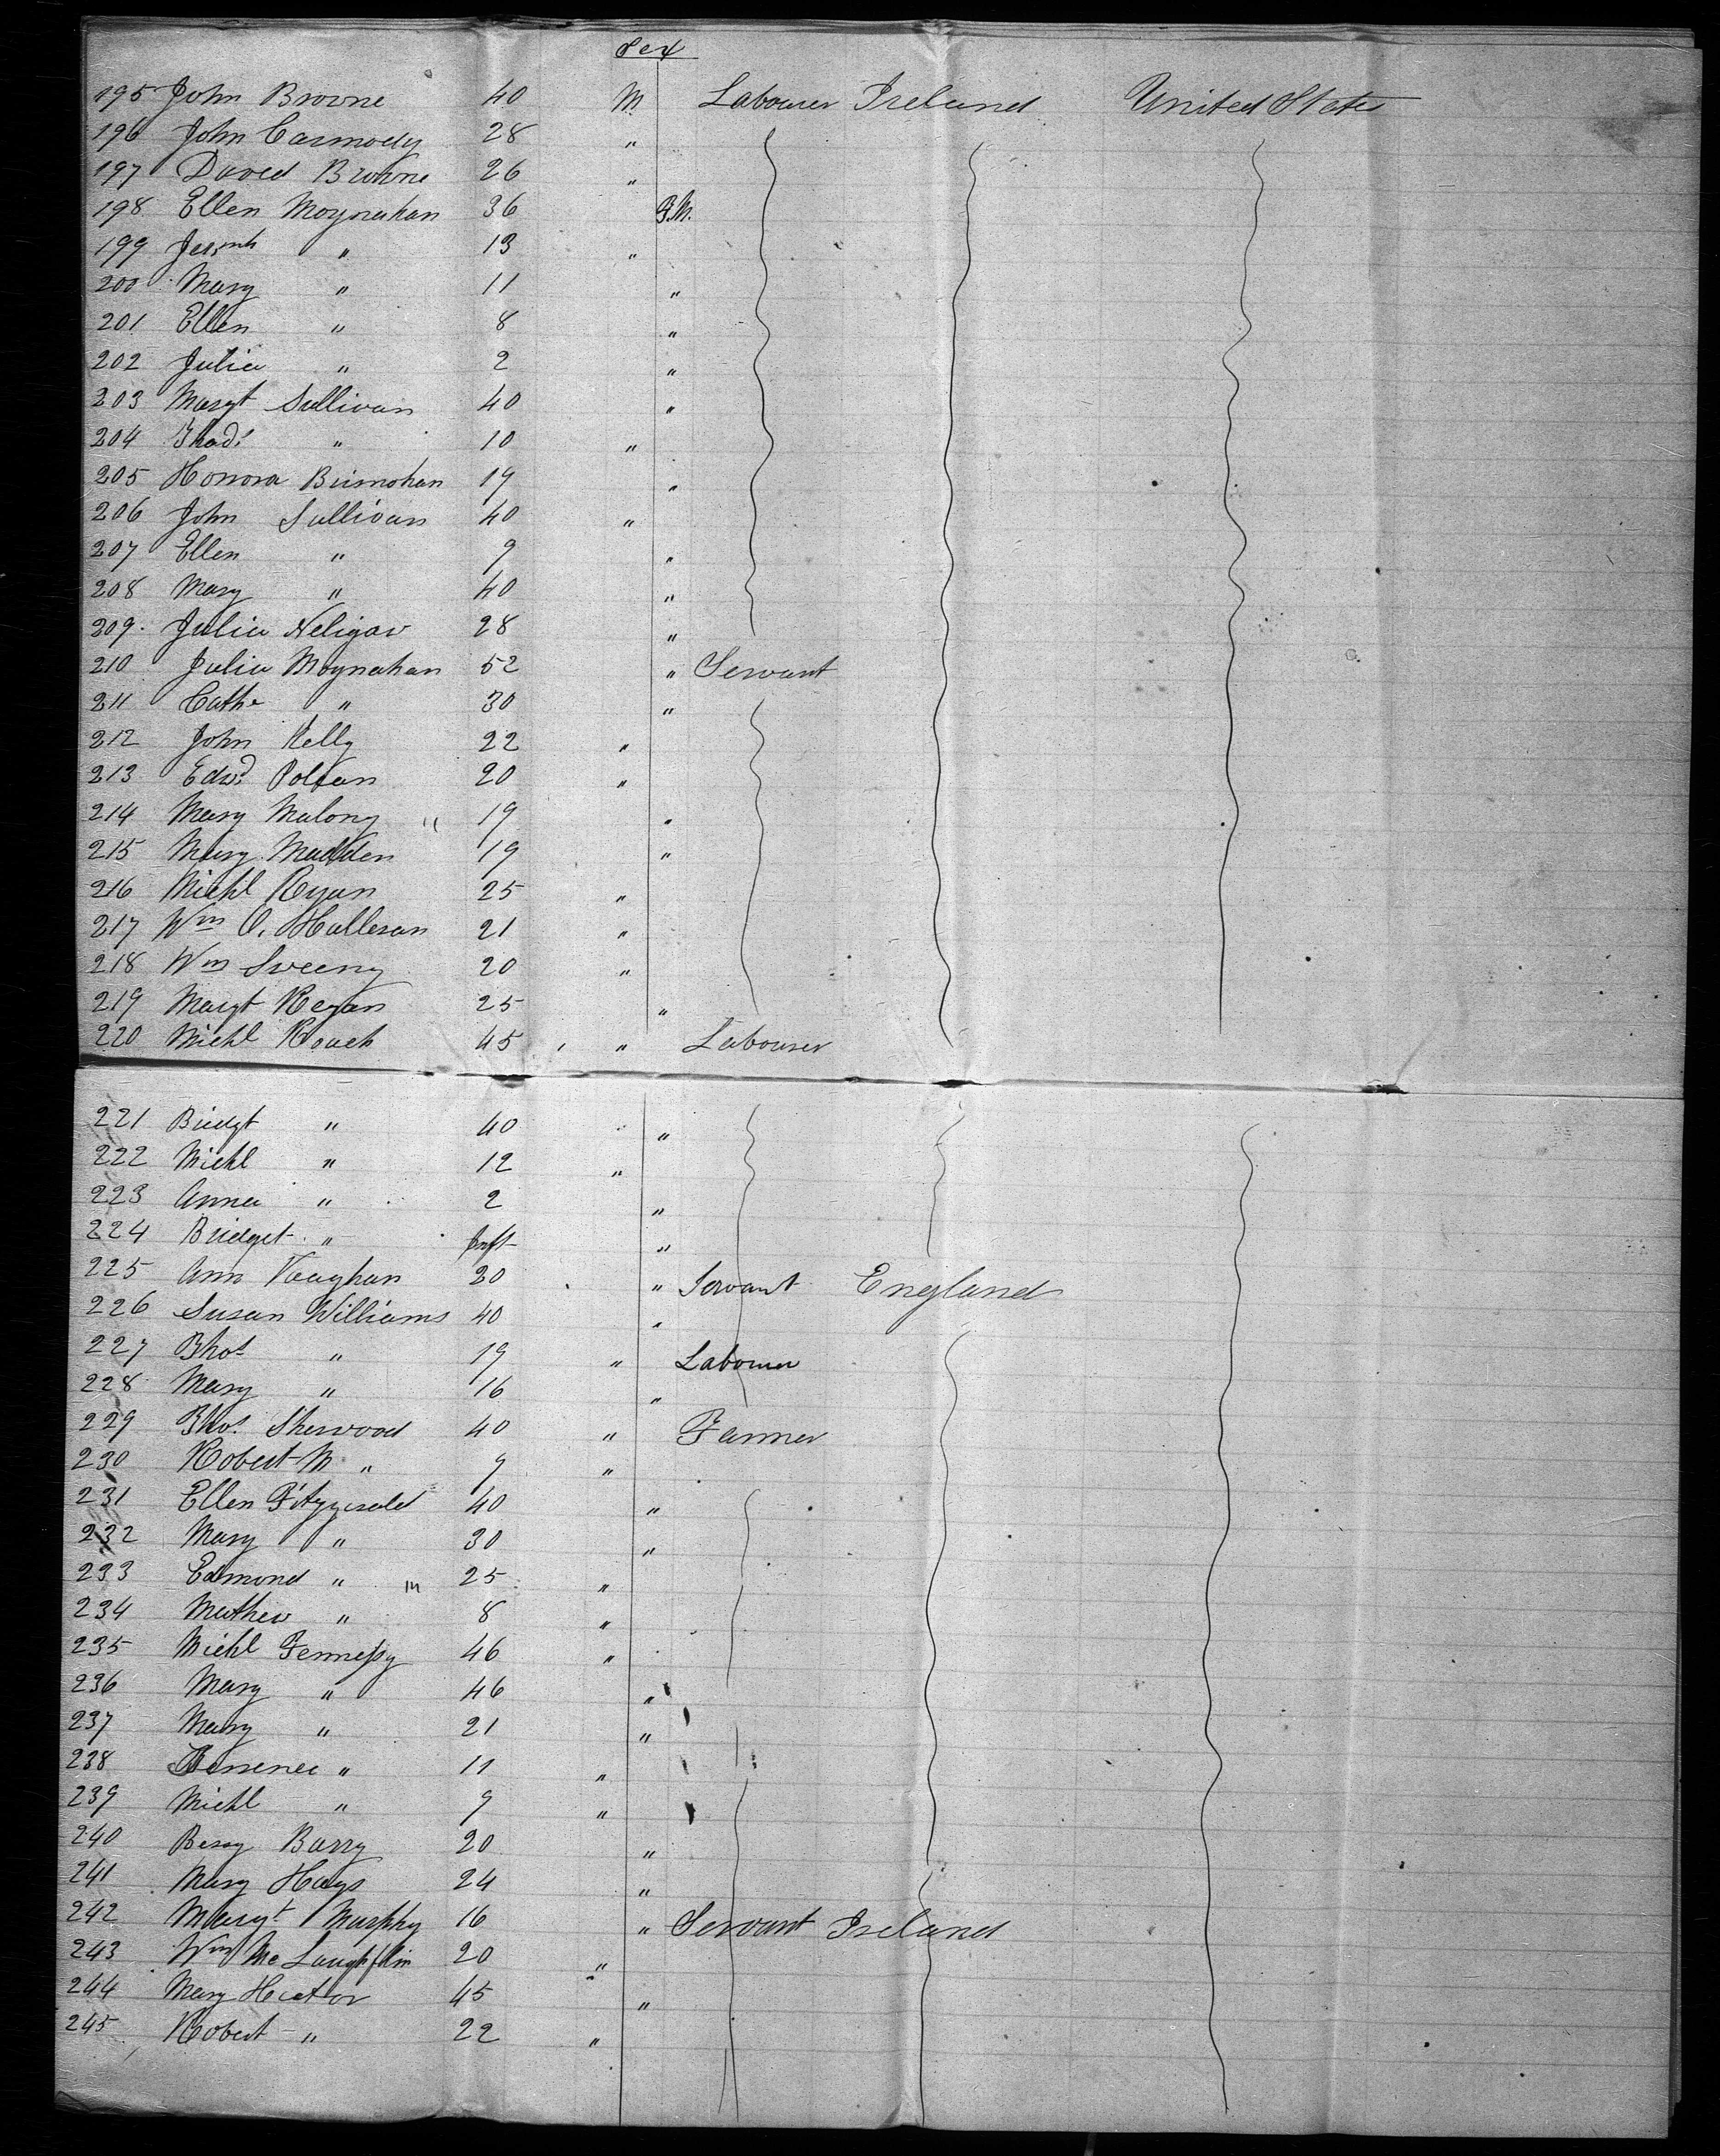 Sex
195 John Browne 40 M Labourer Ireland United States
196 John Carmody 28 "
197 David Browne 26 "
198 Ellen Moynahan 36 F.M.
199 " 13 "
200 Mary " 11 "
201 Ellen " 8 "
202 Julia " 2 "
203 Margt Sullivan 40 "
204 Thads " 10 "
205 Honora 19 "
206 John Sullivan 40 "
207 Ellen " 9 "
208 Mary " 40 "
209 Julia Neligan 28 "
210 Julia Moynahan 52 " Servant
211 Cathe " 30 "
212 John Kelly 22 "
213 Edwd 20 "
214 Mary Malony " 19 "
215 Mary Madden 19 "
216 Michl Ryan 25 "
217 Wm O. Halleran 21 "
218 Wm Sweeny 20 "
219 Margt Regan 25 "
220 Michl Roach 45 " Labourer
221 Bridgt " 40 "
222 Michl " 12 "
223 Anna " 2 "
224 Bridget " Inft "
225 Ann Vaughan 20 " Servant England
226 Susan Williams 40 "
227 Thos " 19 " Labourer
228 Mary " 16 "
229 Thos. Sherwood 40 " Farmer
230 Robert M " 9 "
231 Ellen Fitzgerald 40 "
232 Mary " 30 "
233 Edmond " 25 "
234 Mathew " 8 "
235 Michl Fennessy 46 "
236 Mary " 46 "
237 Mary " 21 "
238 " 11 "
239 Michl " 9 "
240 Bessy Barry 20 "
241 Mary Hays 24 "
242 Margt Murphy 16 " Servant Ireland
243 Wm McLaughlin 20 "
244 Mary Hector 45 "
245 Robert " 22 "